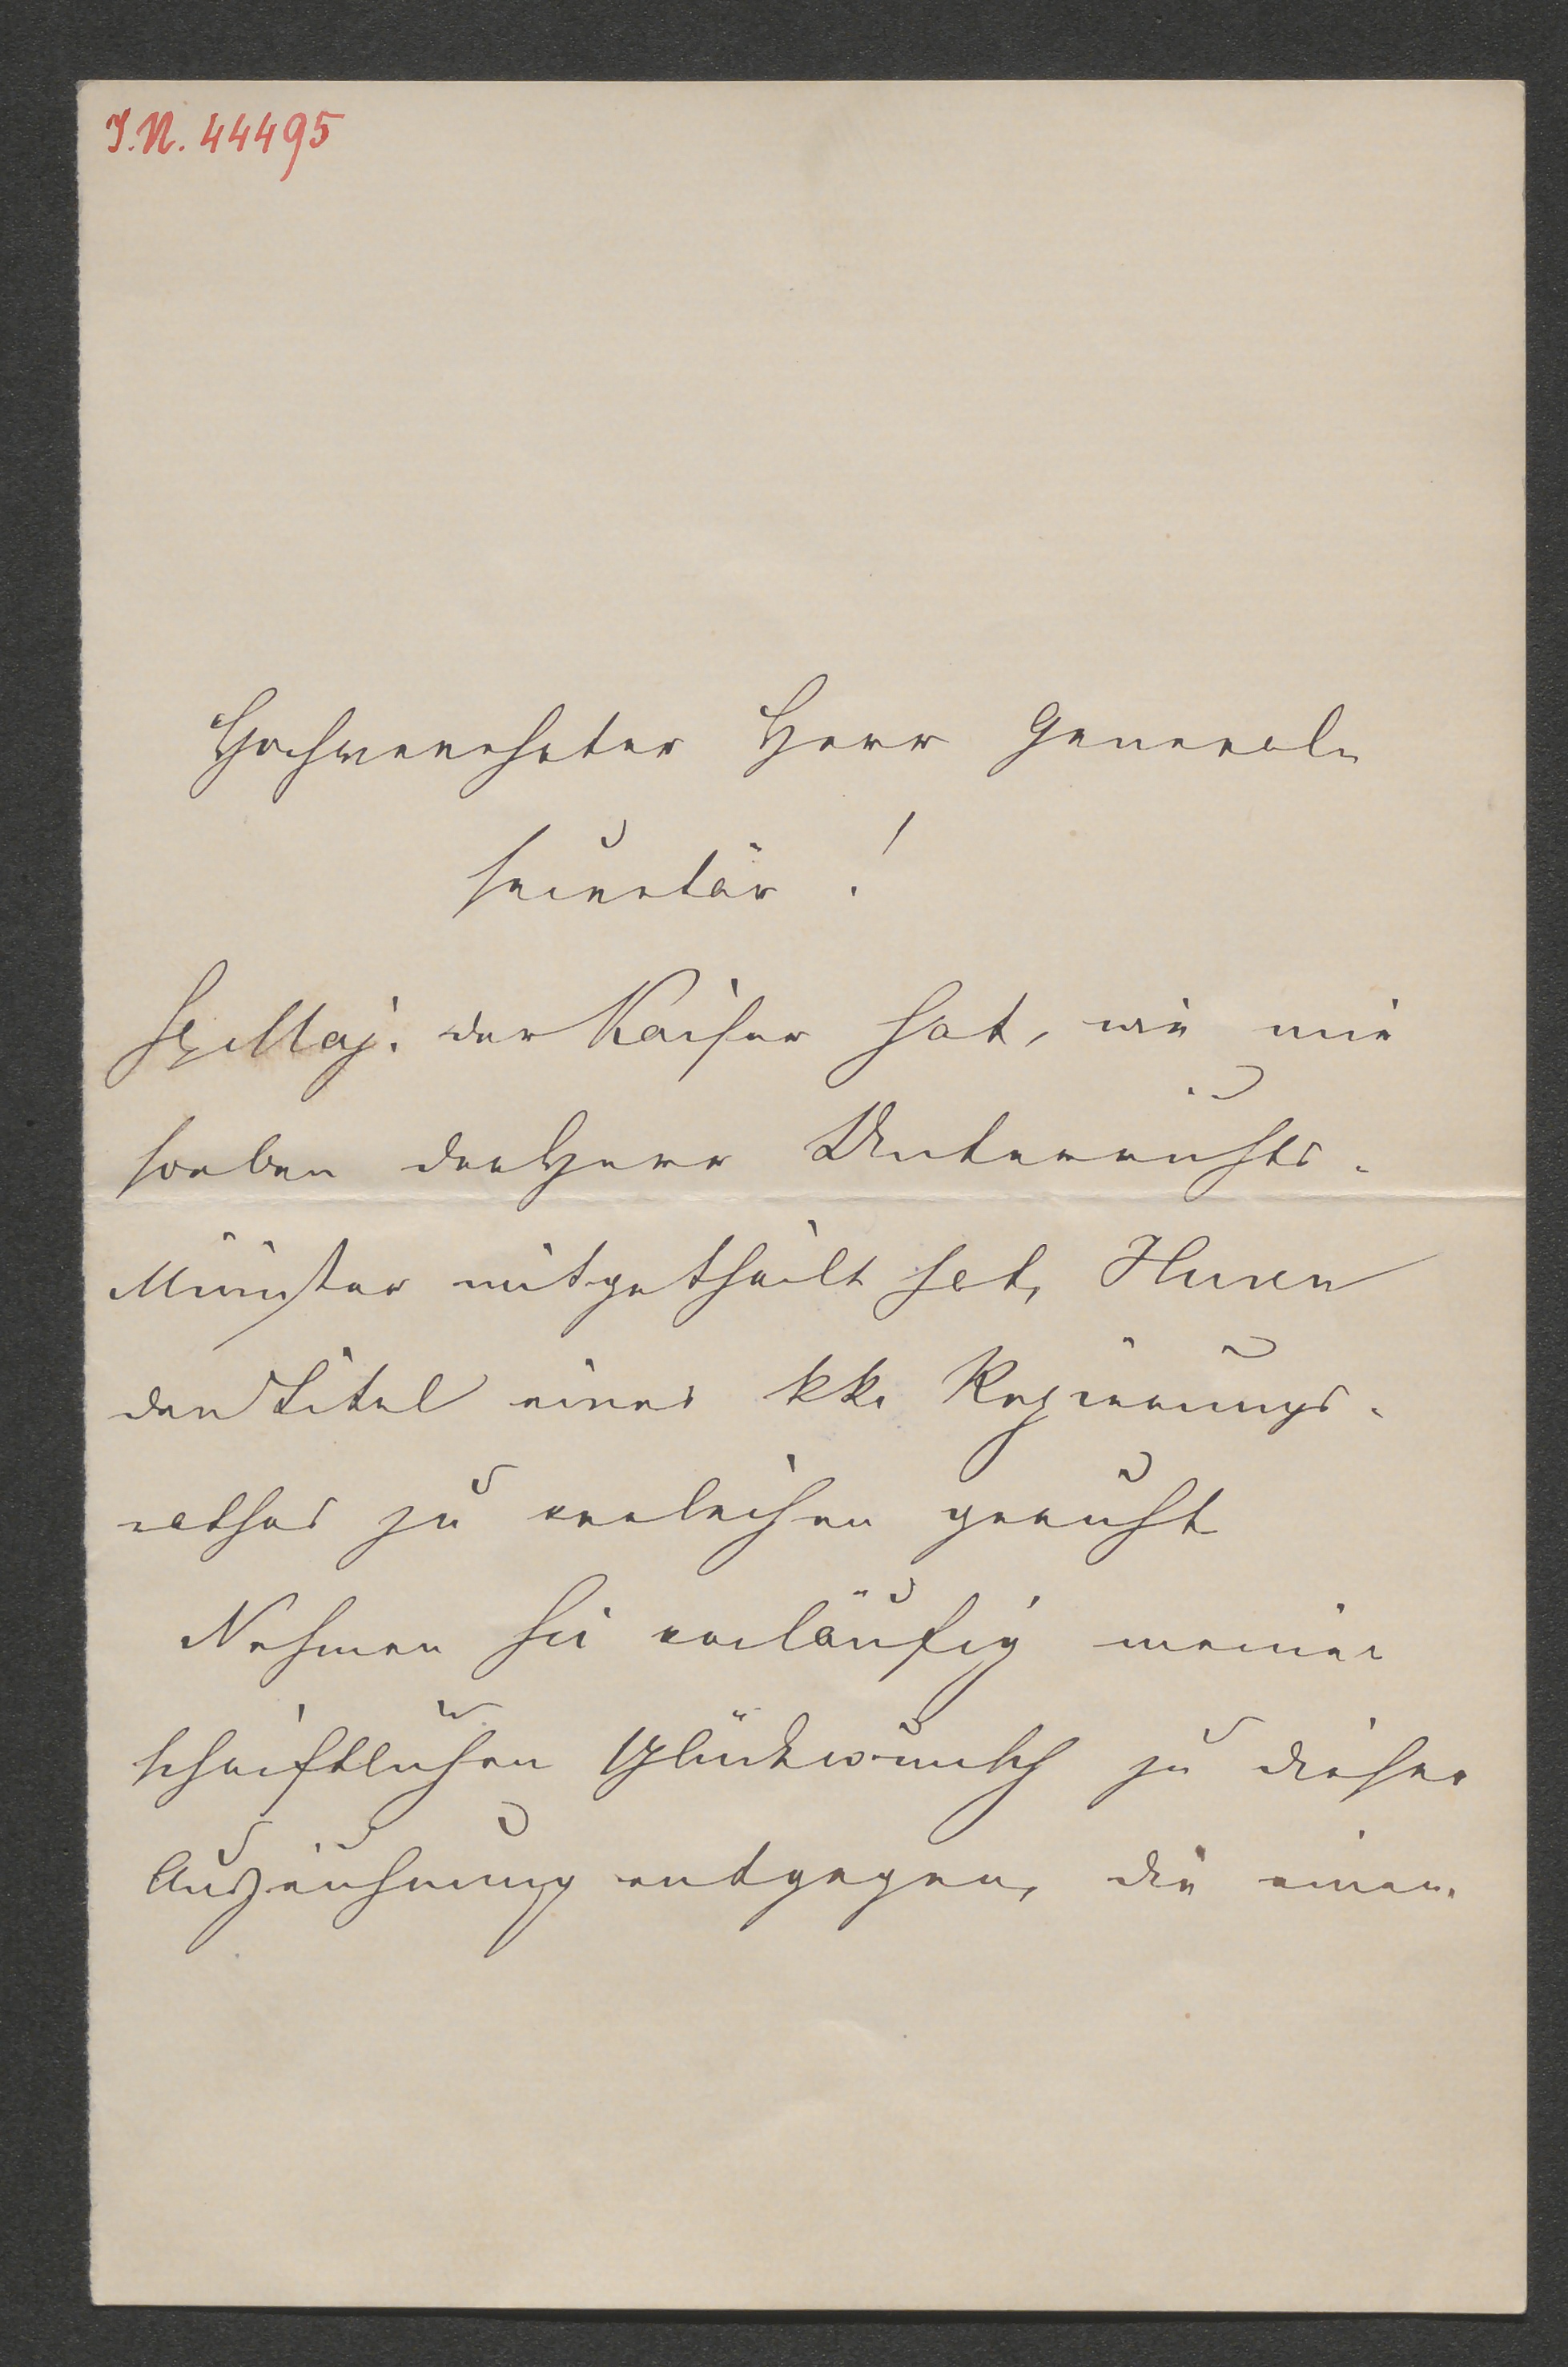 I.N. 44495
Hochverehrter Herr General-
secretär!
Se. Maj. der Kaiser hat, wie mir
soeben der Herr Unterrichts-
Minister mitgetheilt hat, Ihnen
den Titel eines kk. Regierungs-
rathes zu verleihen geruht
Nehmen Sie vorläufig meinen
schriftlichen Glückwunsch zu dieser
Auszeichnung entgegen, die einen